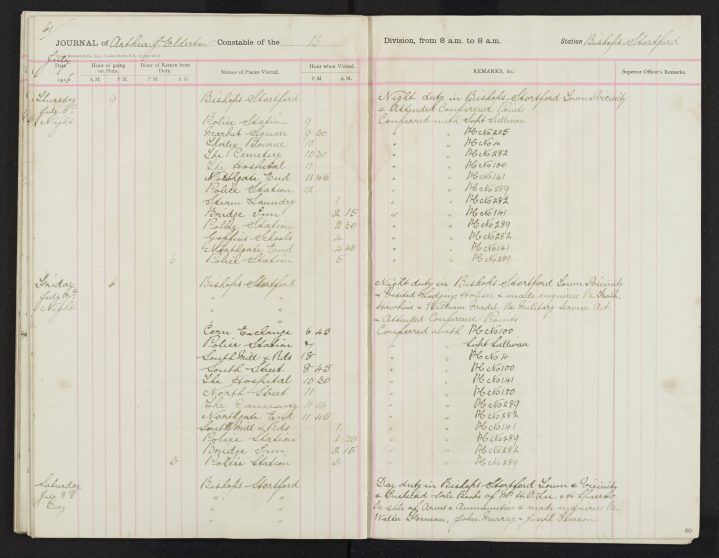 61
JOURNAL of Arthur J. Elderton Constable of the B Division, from 8 a.m. to 8 a.m. Station Bishops Stortford
July
Date Hour of going on Duty. Hour of Return from Duty Names of Places Visited. Hour when Visited. REMARKS, &c. Superior Officer's Remarks.
1916 A.M. P.M. P.M. A.M. P.M. A.M.
Thursday 9 Bishops Stortford Night duty in Bishops Stortford Town & Vicinity
July 6th & Attended Conference Points
Night Police Station 9 Conferred with Supt Sullivan
Market Square 9 30 " " PC No 205
Thorley Bourne 10 " " PC No 4
The Cemetery 10 30 " " PC No 282
The Hospital 11 " " PC No 100
Northgate End 11 45 " " PC No 141
Police Station 12 " " PC No 289
Steam Laundry 1 " " PC No 282
Bridge Inn 2 15 " " PC No 141
Police Station 2 30 " " PC No 289
Schools 4 " " PC No 282
Northgate End 4 45 " " PC No 141
6 Police Station 5 " " PC No 289
Friday 6 Bishops Stortford Night duty in Bishops Stortford Town & Vicinity
July " " & Visited Lodging Houses, & made enquiries Re
Night " " & William Re Military Service Act
" " & Attended Conference Points
Corn Exchange 6 45 Conferred with PC No 100
Police Station " Supt Sullivan
South Mill & Rds 8 " " PC No 4
South Street 8 45 " " PC No 100
The Hospital 10 30 " " PC No 141
North Street 11 " " PC No 100
The Causeway 11 15 " " PC No 289
Northgate End 11 45 " " PC No 282
South Mill & Rds 1 " " PC No 141
Police Station 1 30 " " PC No 289
Bridge Inn 2 15 " " PC No 282
3 Police Station 3 " " PC No 289
Saturday Bishops Stortford Day duty in Bishops Stortford Town & Vicinity
July 8th " " & Checked Sale Books of Mr H.P. Lee, & H
Day " " Re Sale of Arms & Ammunition & made enquiries Re
" " Walter Gorman, John Murray & Joseph